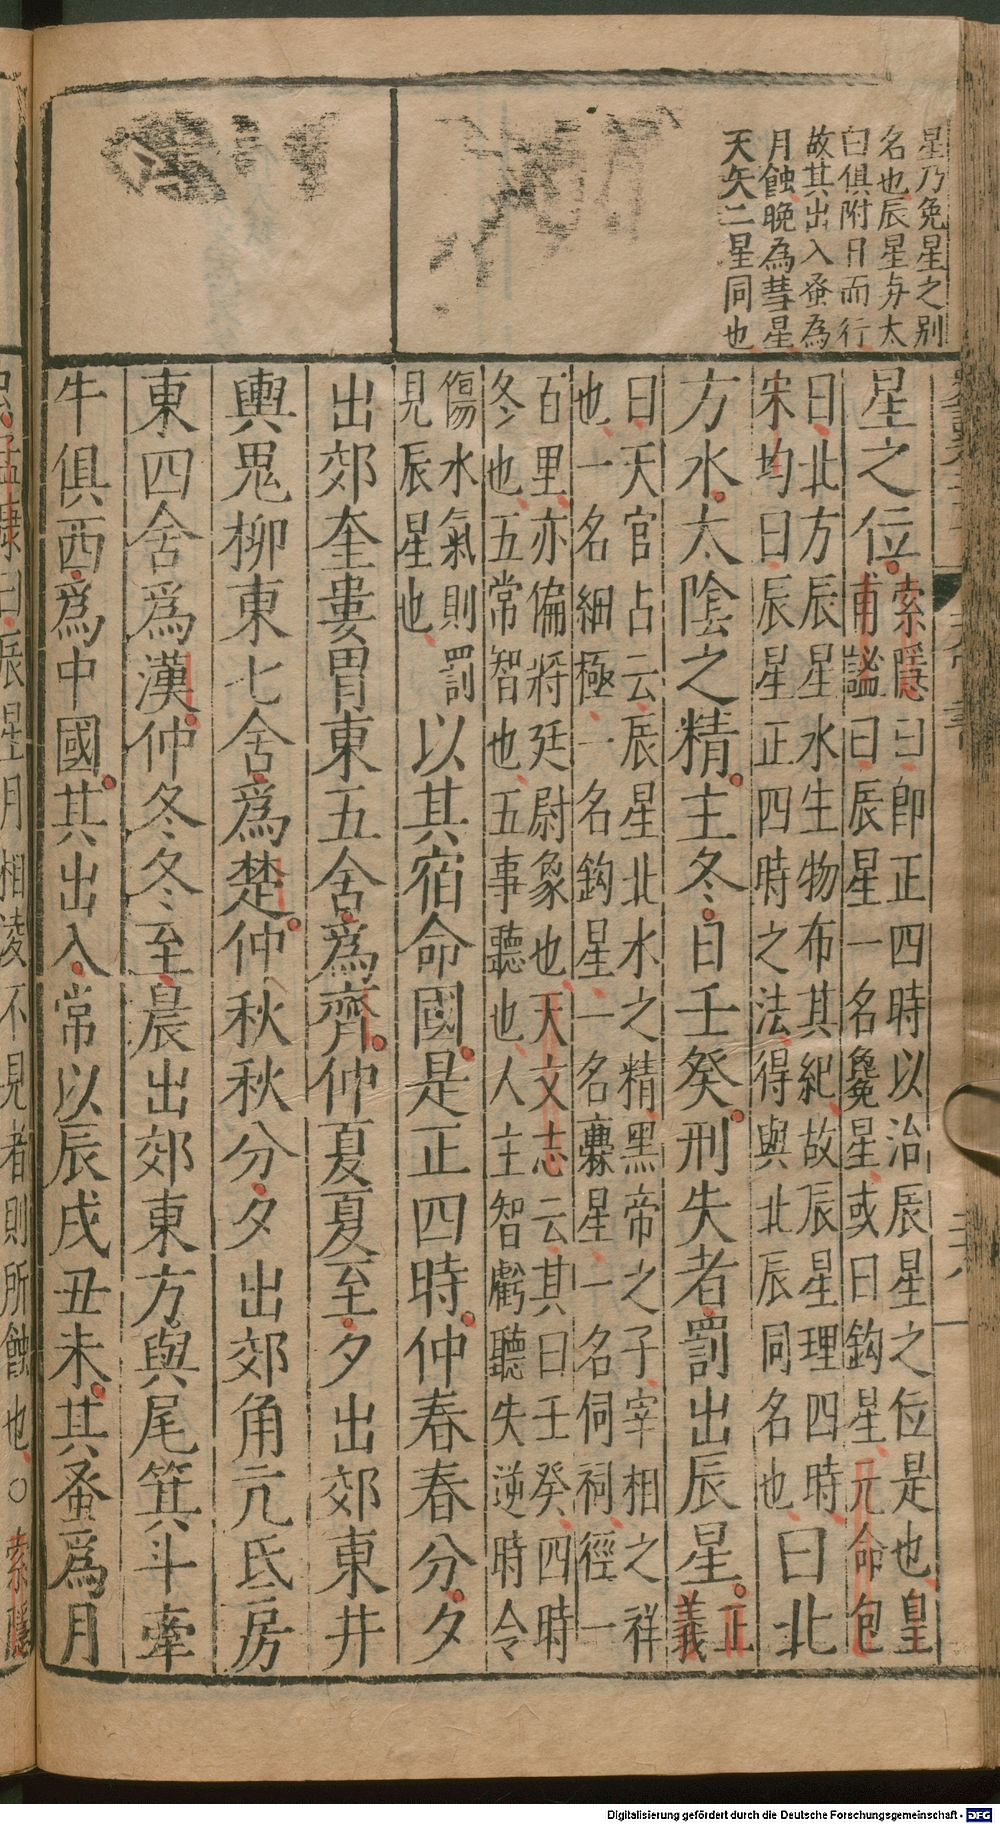 星乃免星之别
名也辰星与太
白俱附日而行
故其出入蚤為
月蝕晚為彗星
天矢二星同也
星之位
索隱曰即正四時以治辰星之位是也皇
甫謐曰辰星一名毚星或曰鈎星元命包
曰北方辰星水生物布其紀故辰星理四時
宋均曰辰星正四時之法得與北辰同名也
曰北
方水太陰之精主冬日壬癸刑失者罰出辰星
正
義
曰天官占云辰星北水之精黑帝之子宰相之祥
也一名細極一名鈎星一名爨星一名伺祠徑一
百里亦偏將廷尉象也天文志云其曰壬癸四時
冬也五常智也五事聽也人主智虧聽失逆時令
傷水氣則罰
見辰星也
以其宿命國是正四時仲春春分夕
出郊奎婁胃東五舍爲齊仲夏夏至夕出郊東井
輿鬼柳東七舍爲楚仲秋秋分夕出郊角亢氐房
東四舍爲漢仲冬冬至晨出郊東方與尾箕斗牽
牛俱西爲中國其出入常以辰戌丑未其蚤爲月
孟康曰辰星月相凌不見者則所蝕也○索隱
Digitalisierung gefördert durch die Deutsche Forschungsgemeinschaft - DFG